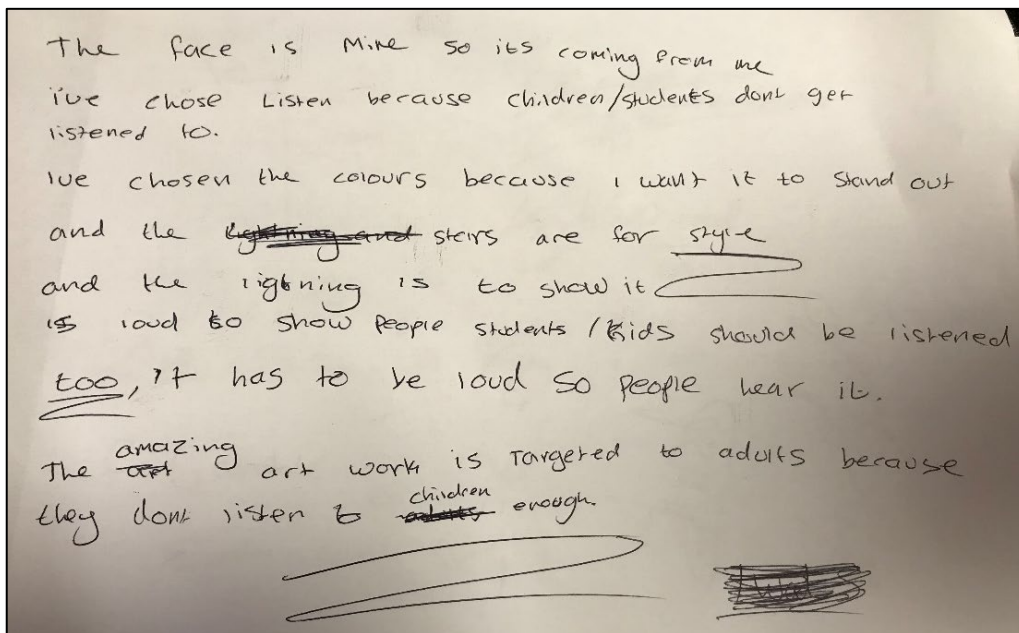 The face is Mine so its coming from me
i've chose Listen because children/students dont get
listened to.
Ive chosen the colours because i want it to stand out
and the lightning and stars are for style
and the lightning is to show it
is loud to show people students/kids should be listened
too, it has to be loud so people hear it.
The art amazing art work is Targeted to adults because
they dont listen to adults children enough.